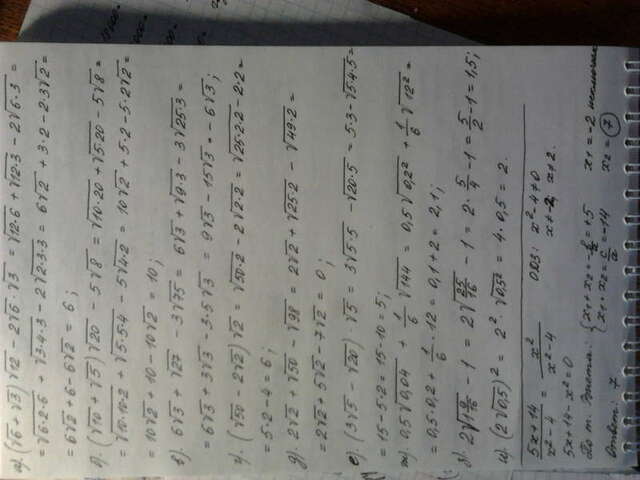 а). (√6 + √3)√12 - 2√6·√3 = √12·6 + √12·3 - 2√6·3 =
= √6·2·6 + √3·4·3 - 2√2·3·3 = 6√2 + 3·2 - 2·3√2 =
= 6√2 + 6 - 6√2 = 6;
б). (√10 + √5)√20 - 5√8 = √10·20 + √5·20 - 5√8 =
= √10·10·2 + √5·5·4 - 5√4·2 = 10√2 + 5·2 - 5·2√2 =
= 10√2 + 10 - 10√2 = 10;
в). 6√3 + √27 - 3√75 = 6√3 + √9·3 - 3√25·3 =
= 6√3 + 3√3 - 3·5√3 = 9√3 - 15√3 = -6√3;
г). (√50 - 2√2)√2 = √50·2 - 2√2·2 = √25·2·2 - 2·2 =
= 5·2 - 4 = 6;
д). 2√2 + √50 - √98 = 2√2 + √25·2 - √49·2 =
= 2√2 + 5√2 - 7√2 = 0;
е). (3√5 - √20)·√5 = 3√5·5 - √20·5 = 5·3 - √5·4·5 =
= 15 - 5·2 = 15 - 10 = 5;
ж). 0,5√0,04 + 1/6 √144 = 0,5√0,2² + 1/6 √12² =
= 0,5·0,2 + 1/6·12 = 0,1 + 2 = 2,1;
з). 2√1 9/16 - 1 = 2√25/16 - 1 = 2·5/4 - 1 = 5/2 - 1 = 1,5;
и). (2√0,5)² = 2²·√0,5² = 4·0,5 = 2.
5x+14 / x²-4 = x² / x²-4 ОДЗ: x²-4≠0
5x+14-x²=0 x≠-2, x≠2.
По т. Виета: { x1+x2 = -b/a = +5 x1 = -2
x1·x2 = c/a = -14 x2 = 7
Ответ: 7